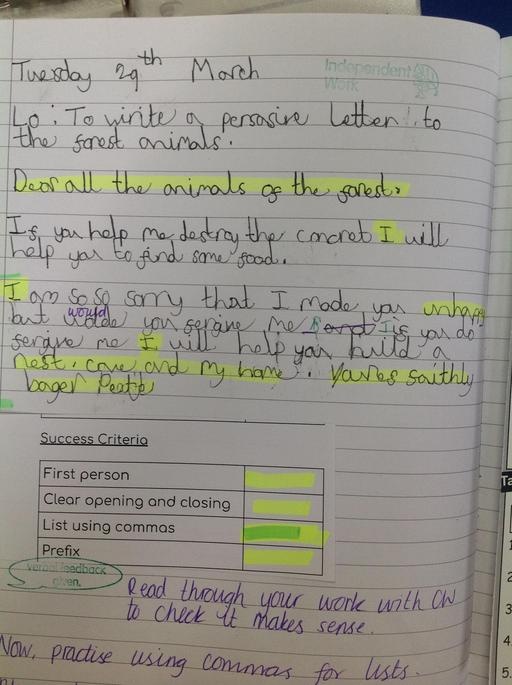 Tuesday 29th March
Independent Work
Lo: To write a persasive letter to
the forest animals.
Dear all the animals of the forest,
If you help me destroy the concrot I will
help you to find some food.
I am so so sorry that I made you unhappy
but would you fergive me If you do
fergive me I will help you build a
nest, cave and my home. Yavres saithly
bager
Success Criteria
First person
Clear opening and closing
List using commas
Prefix
verbal feedback
given.
Read through your work with CW
to check it makes sense.
Now, practise using commas for lists.
Ta
1
2
3
4.
5.